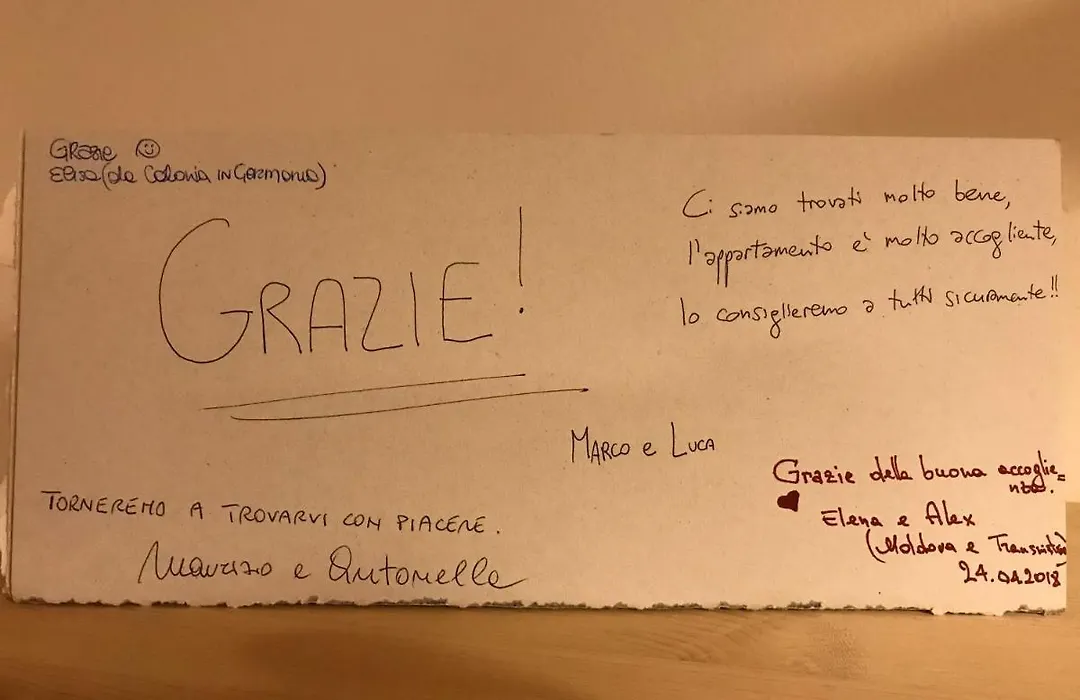 Grazie ☺
Elisa (da Colonia in Germania)
GRAZIE!
Ci siamo trovati molto bene,
l'appartamento è molto accogliente,
lo consiglieremo a tutti sicuramente!!
MARCO e LUCA
TORNEREMO A TROVARVI CON PIACERE.
Maurizio e Antonella
Grazie della buona accoglie=
nza.
♥
Elena e Alex
(Moldova e
24.04.2018